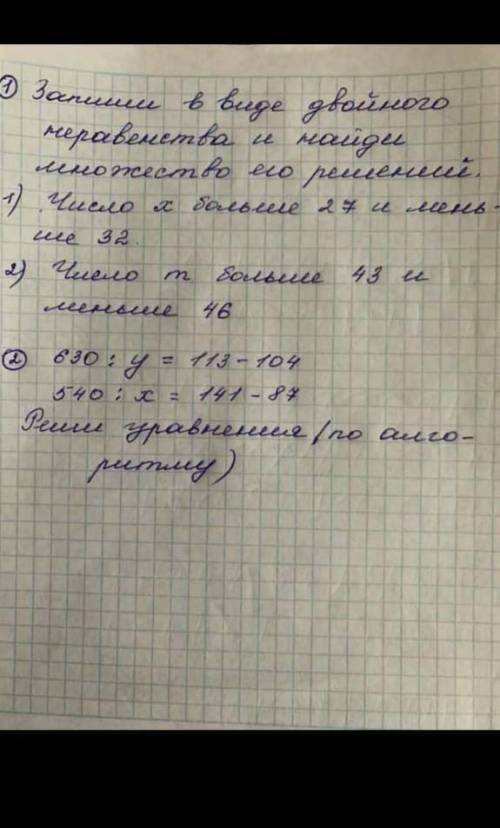 ① Запиши в виде двойного
неравенства и найди
множество его решений.
1) Число x больше 27 и мень-
ше 32.
2) Число m больше 43 и
меньше 46
② 630 : y = 113 - 104
540 : x = 141 - 87
Реши уравнения (по алго-
ритму)